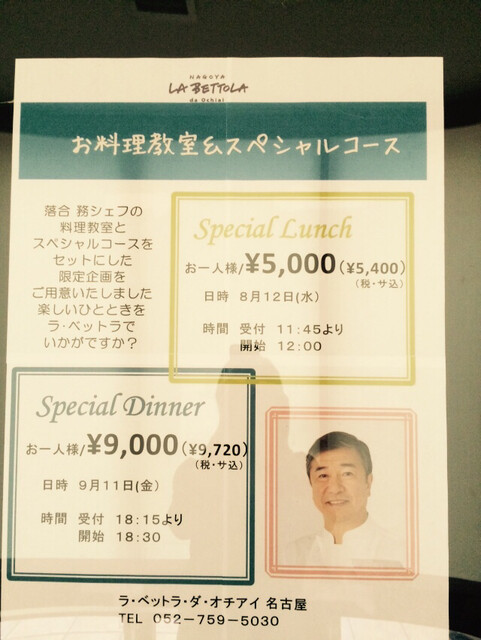 NAGOYA
LA BETTOLA
da Ochiai
お料理教室&スペシャルコース
落合 務シェフの
料理教室と
スペシャルコースを
セットにした
限定企画を
ご用意いたしました
楽しいひとときを
ラ・ベットラで
いかがですか？
Special Lunch
お一人様/¥5,000(¥5,400)
(税・サ込)
日時 8月12日(水)
時間 受付 11:45より
開始 12:00
Special Dinner
お一人様/¥9,000(¥9,720)
(税・サ込)
日時 9月11日(金)
時間 受付 18:15より
開始 18:30
ラ・ベットラ・ダ・オチアイ 名古屋
TEL 052-759-5030